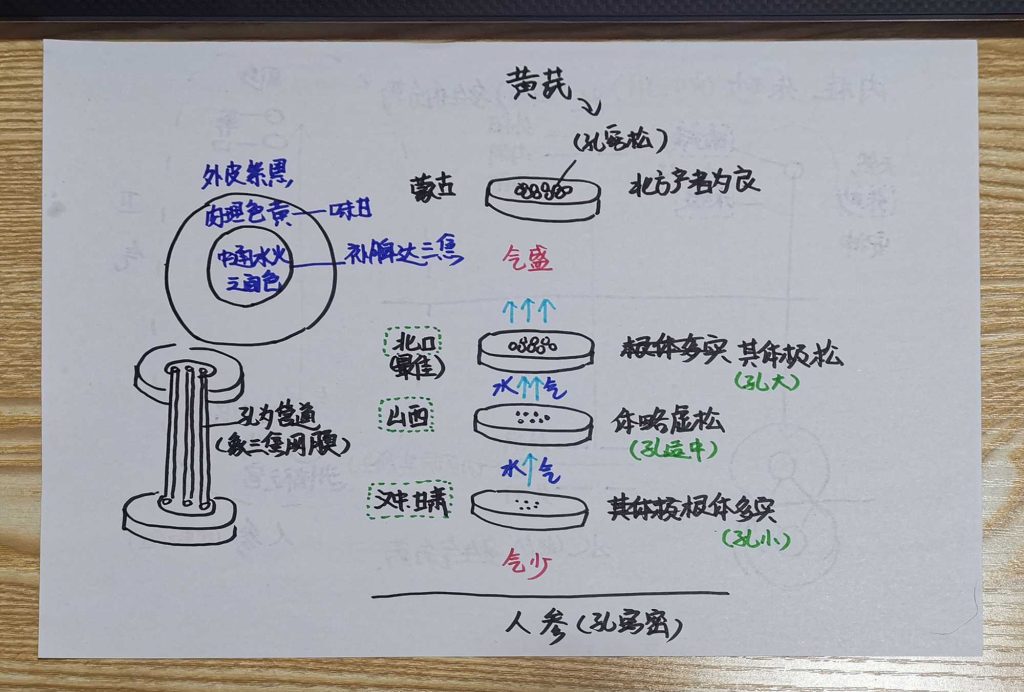 黄芪
(孔窍松)
外皮紫黑
蒙古
北方产者为良
肉理色黄 味甘
中通水火
之间色
补脾达三焦
气盛
北口
(最佳)
根体多实 其体极松
(孔大)
水 气
山西
体略虚松
(孔适中)
孔为管道
(象三焦网膜)
水 气
汉中甘肃
其体极根体多实
(孔小)
气少
人参(孔窍密)